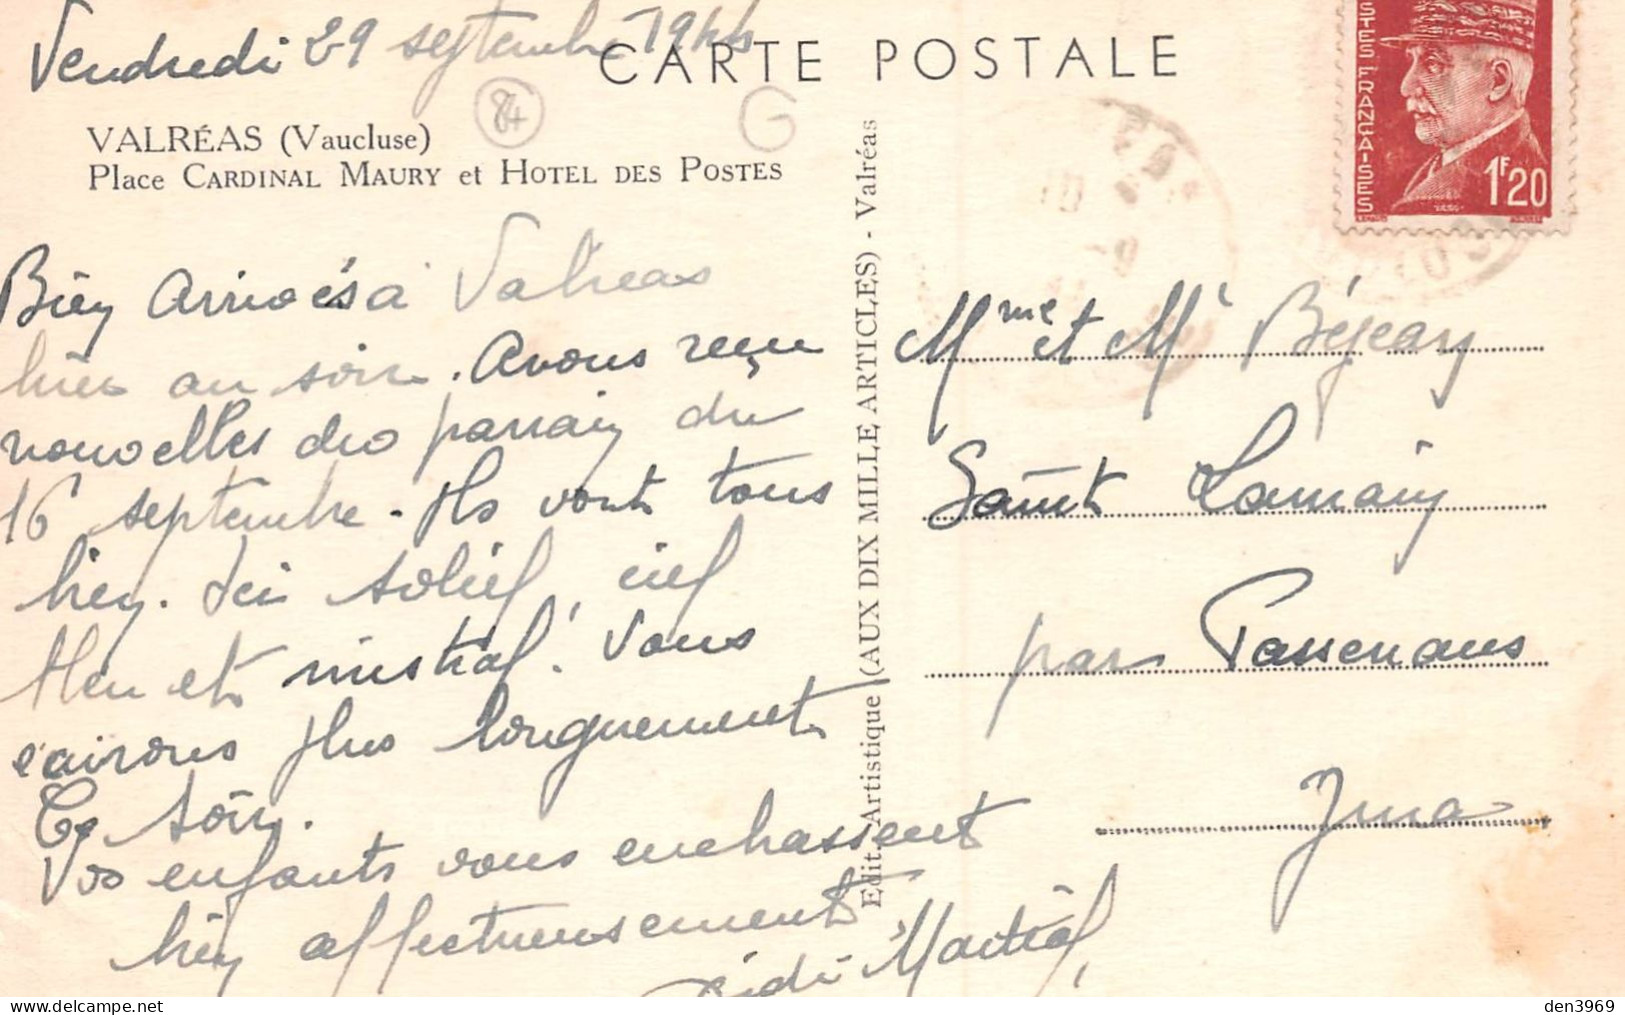 Vendredi 29 septembre 1944
CARTE POSTALE
84
G
VALRÉAS (Vaucluse)
Place CARDINAL MAURY et HOTEL DES POSTES
Bien Arrivés à Valréas
hier au soir. Avons reçu
nouvelles du parrain du
16 septembre. Ils vont tous
bien. Ici soleil, ciel
bleu et mistral. Vous
écrirons plus longuement
Ce soir.
Vos enfants vous embrassent
bien affectueusement
Didi Martial
Edit. Artistique (AUX DIX MILLE ARTICLES) - Valréas
POSTES FRANÇAISES
1F20
Mme et Mr Béjean
Saint Lamain
par Passenans
Jura
den3969